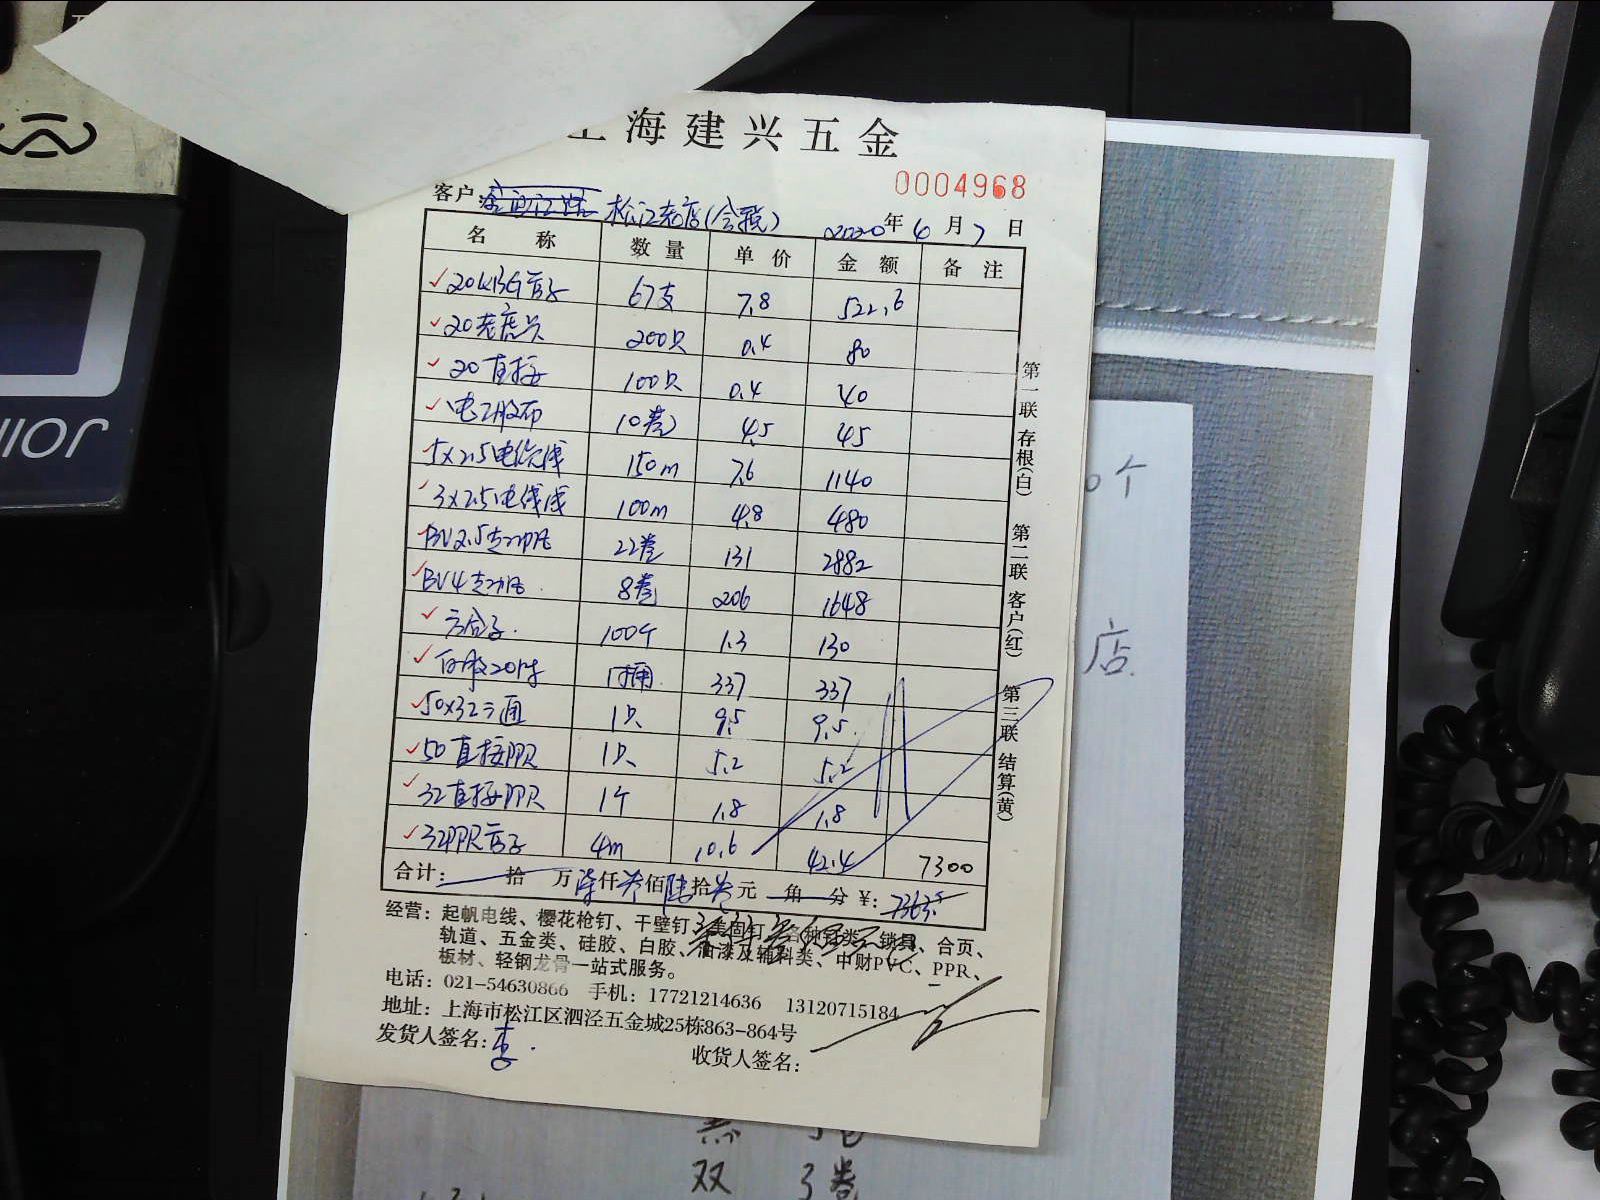 上海建兴五金
0004968
客户: 松江老店(含税) 2020年6月7日
名 称 数量 单价 金额 备注
20KBG管子 67支 7.8 522.6
20老虎头 200只 0.4 80
20直接 100只 0.4 40
电工胶布 10卷 4.5 45
5x2.5电缆线 150m 7.6 1140
3x2.5电缆线 100m 4.8 480
BV2.5 22卷 131 2882
BV4 8卷 206 1648
方合子. 100个 1.3 130
白胶20 1桶 337 337
50x32三通 1只 9.5 9.5
50直接PPR 1只 5.2 5.2
32直接PPR 1个 1.8 1.8
32PPR管子 4m 10.6 42.4 7300
合计: 拾 万柒仟叁佰陆拾叁元 角 分 ¥: 7363.5
第一联 存根(白) 第二联 客户(红) 第三联 结算(黄)
经营: 起帆电线、樱花枪钉、干壁钉、美固钉、各种钉类、锁具、合页、
轨道、五金类、硅胶、白胶、油漆及辅料类、中财PVC、PPR、
板材、轻钢龙骨一站式服务。
电话: 021-54630866 手机: 17721214636 13120715184
地址: 上海市松江区泗泾五金城25栋863-864号
发货人签名: 李.
收货人签名:
0个
店.
双 3卷